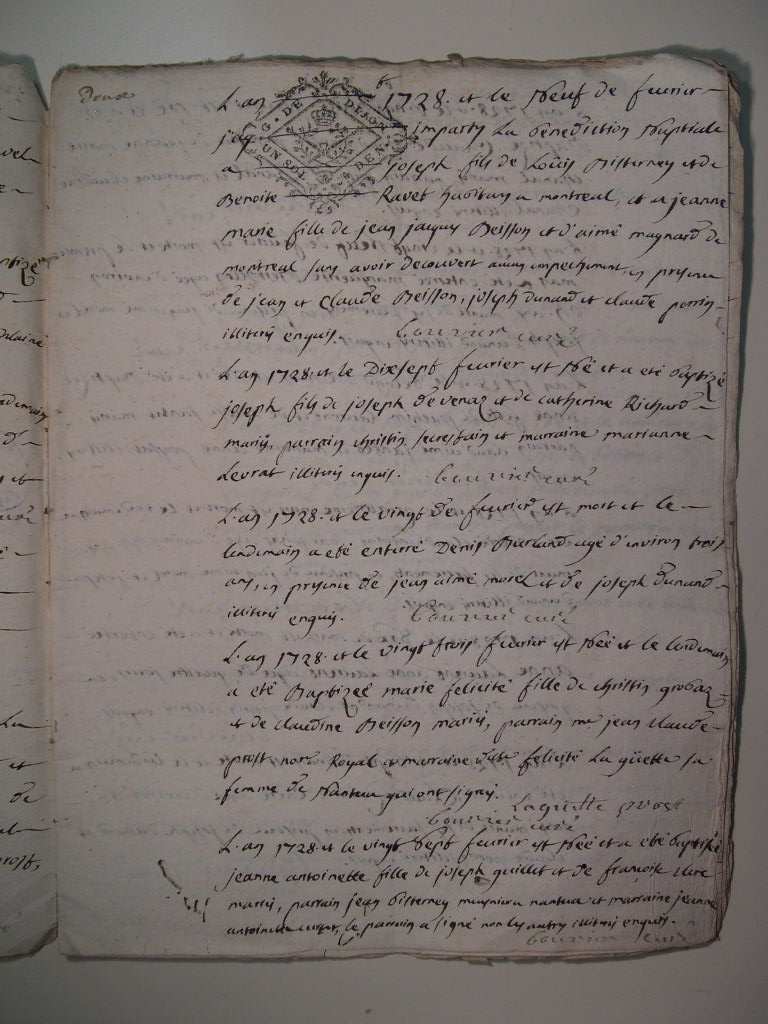 Douze
G. DE DIJON
UN SOL
DEN.
L'an 1728. et le neuf de fevrier
j'ay imparty La benediction Nuptiale
a joseph fils de Louis Bisterney et de
Benoite Ravet habitans a montreal, et a jeanne
marie fille de jean jaques Beisson et d'aimé magnard de
montreal sans avoir decouvert aucun empechement, en presence
de jean et Claude Beisson, joseph dunand et claude perrin
illiteris enquis. bouvier curé
L'an 1728. et le Dixsept fevrier est Né et a eté baptizé
joseph fils de joseph devenaz et de catherine Richard
mariés, parrain christin secrestain et marraine marianne
Levrat illiteris enquis. bouvier curé
L'an 1728. et le vingt de fevrier est mort et le
lendemain a eté enterré Denis Burland agé d'environ trois
ans, en presence de jean aimé morel et de joseph dunand
illiteris enquis. bouvier curé
L'an 1728. et le vingt trois fevrier est Née et le lendemain
a eté Baptizeé marie felicité fille de christin grobaz
et de claudine Beisson mariés, parrain me. jean claude
prost nore. Royal et marraine dlle felicité La guëtte sa
femme de Nantua qui ont signés.
Laguette prost
bouvier curé
L'an 1728. et le vingt Sept fevrier est Née et a eté baptisée
jeanne antoinette fille de joseph guillet et de françoise
mariés, parrain jean bisterney a nantua et marraine jeanne
antoinette le parrain a signé non les autres illiteris enquis.
bouvier curé